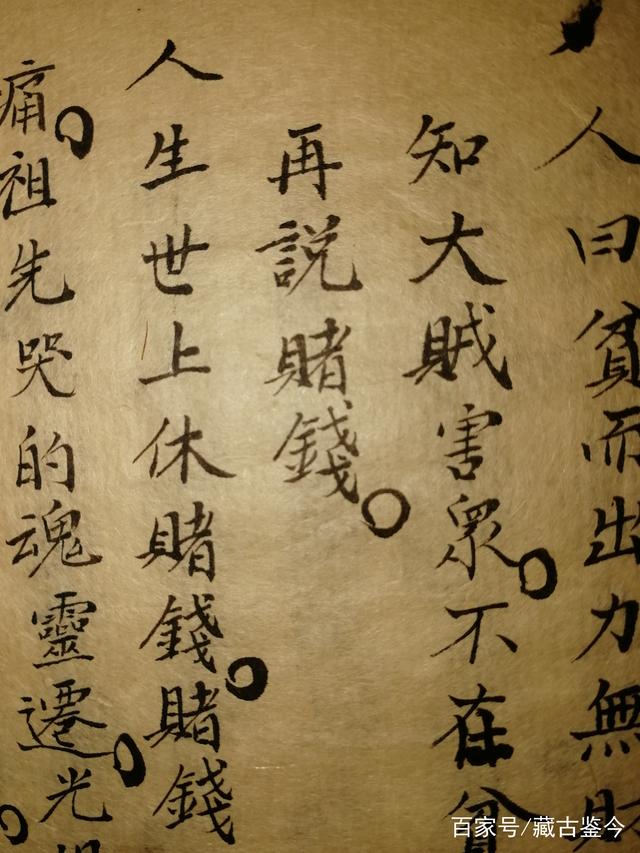 人曰貧而出力無財
知大賊害眾。不在貧
再説賭錢。
人生世上休賭錢。賭錢
痛。祖先哭的魂靈遷。光
百家号/藏古鉴今